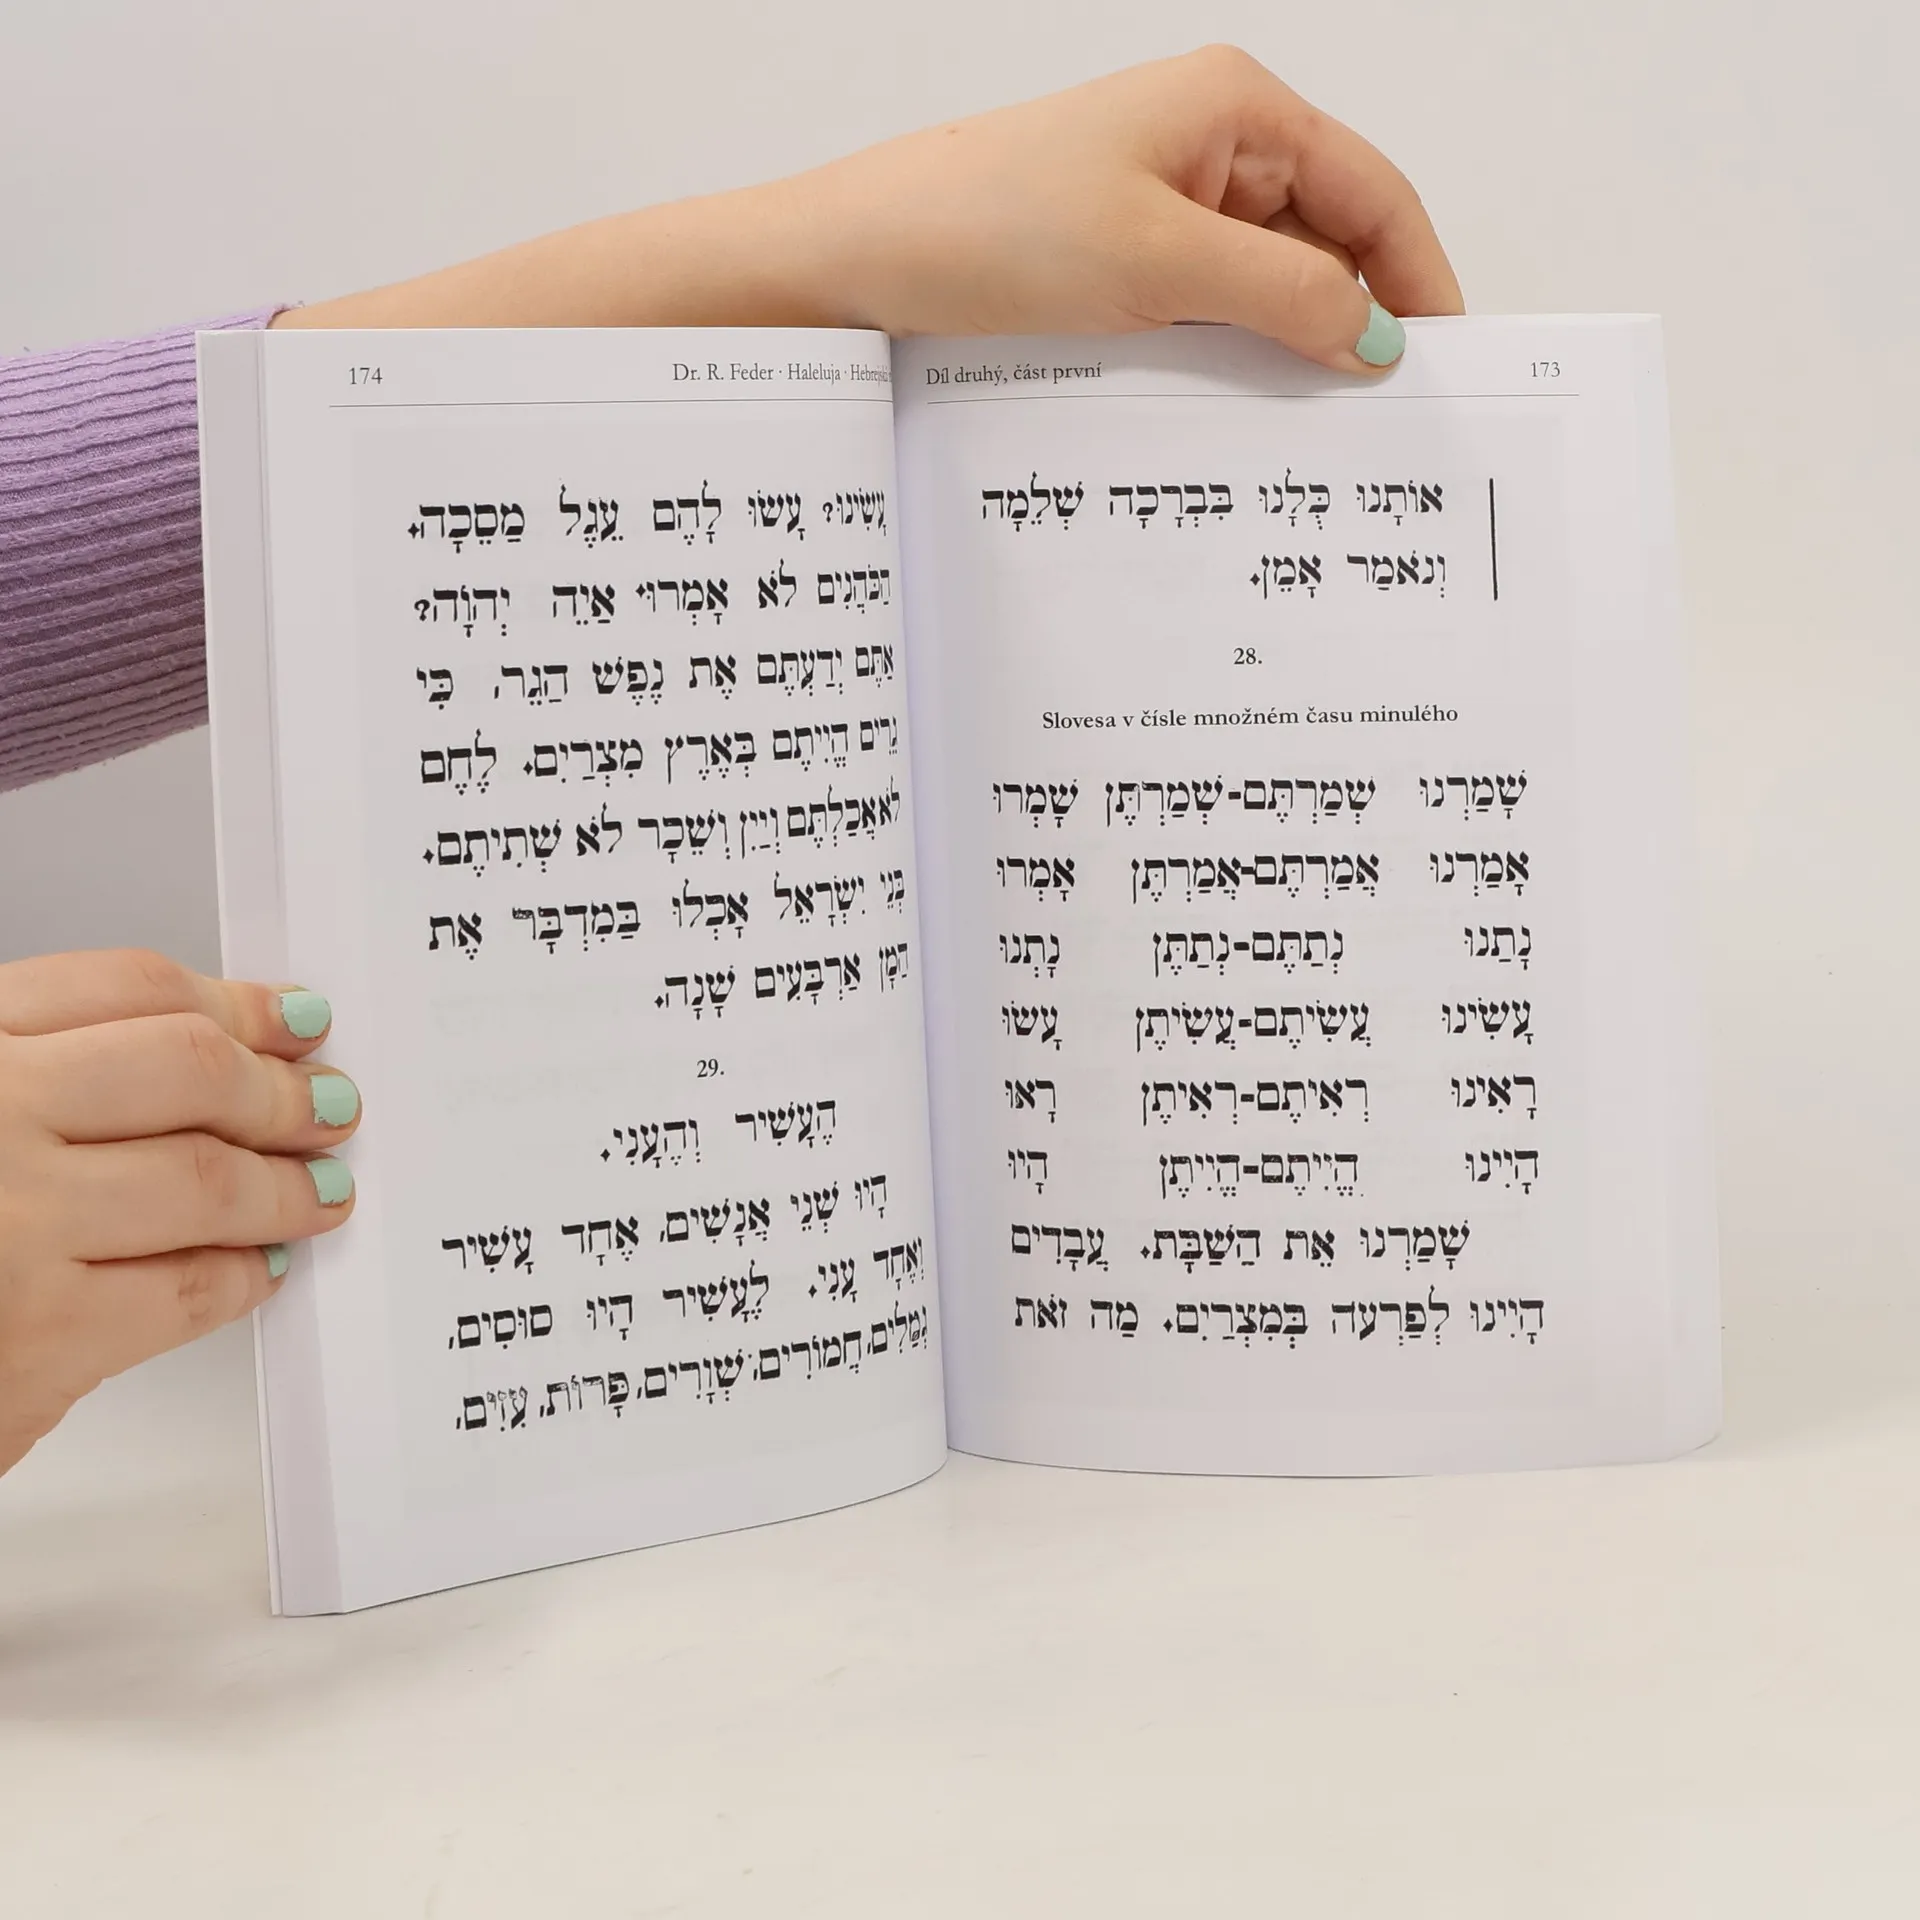 Díl druhý, část první 173
אוֹתָנוּ כֻּלָּנוּ בִּבְרָכָה שְׁלֵמָה
וְנֹאמַר אָמֵן.
28.
Slovesa v čísle množném času minulého
שָׁמַרְנוּ שְׁמַרְתֶּם-שְׁמַרְתֶּן שָׁמְרוּ
אָמַרְנוּ אֲמַרְתֶּם-אֲמַרְתֶּן אָמְרוּ
נָתַנוּ נְתַתֶּם-נְתַתֶּן נָתְנוּ
עָשִׂינוּ עֲשִׂיתֶם-עֲשִׂיתֶן עָשׂוּ
רָאִינוּ רְאִיתֶם-רְאִיתֶן רָאוּ
הָיִינוּ הֱיִיתֶם-הֱיִיתֶן הָיוּ
שָׁמַרְנוּ אֵת הַשַּׁבָּת. עֲבָדִים
הָיִינוּ לְפַרְעה בְּמִצְרַיִם. מַה זֹּאת
174 Dr. R. Feder · Haleluja ·
עָשִׂינוּ? עָשׂוּ לָהֶם עֵגֶל מַסֵּכָה.
הַכֹּהֲנִים לֹא אָמְרוּ. אַיֵּה יְהוָֹה?
אַתֶּם יְדַעְתֶּם אֶת נֶפֶשׁ הַגֵּר, כִּי
גֵרִים הֱיִיתֶם בְּאֶרֶץ מִצְרַיִם. לֶחֶם
לֹא אֲכַלְתֶּם וְיַיִן וְשֵׁכָר לֹא שְׁתִיתֶם.
בְּנֵי יִשְׂרָאֵל אָכְלוּ בַּמִּדְבָּר אֶת
הַמָּן אַרְבָּעִים שָׁנָה.
29.
הֶעָשִׁיר וְהֶעָנִי.
הָיוּ שְׁנֵי אֲנָשִׁים, אֶחָד עָשִׁיר
וְאֶחָד עָנִי. לֶעָשִׁיר הָיוּ סוּסִים,
גְּמַלִּים, חֲמוֹרִים, שְׁוָרִים, פָּרוֹת, עִזִּים,